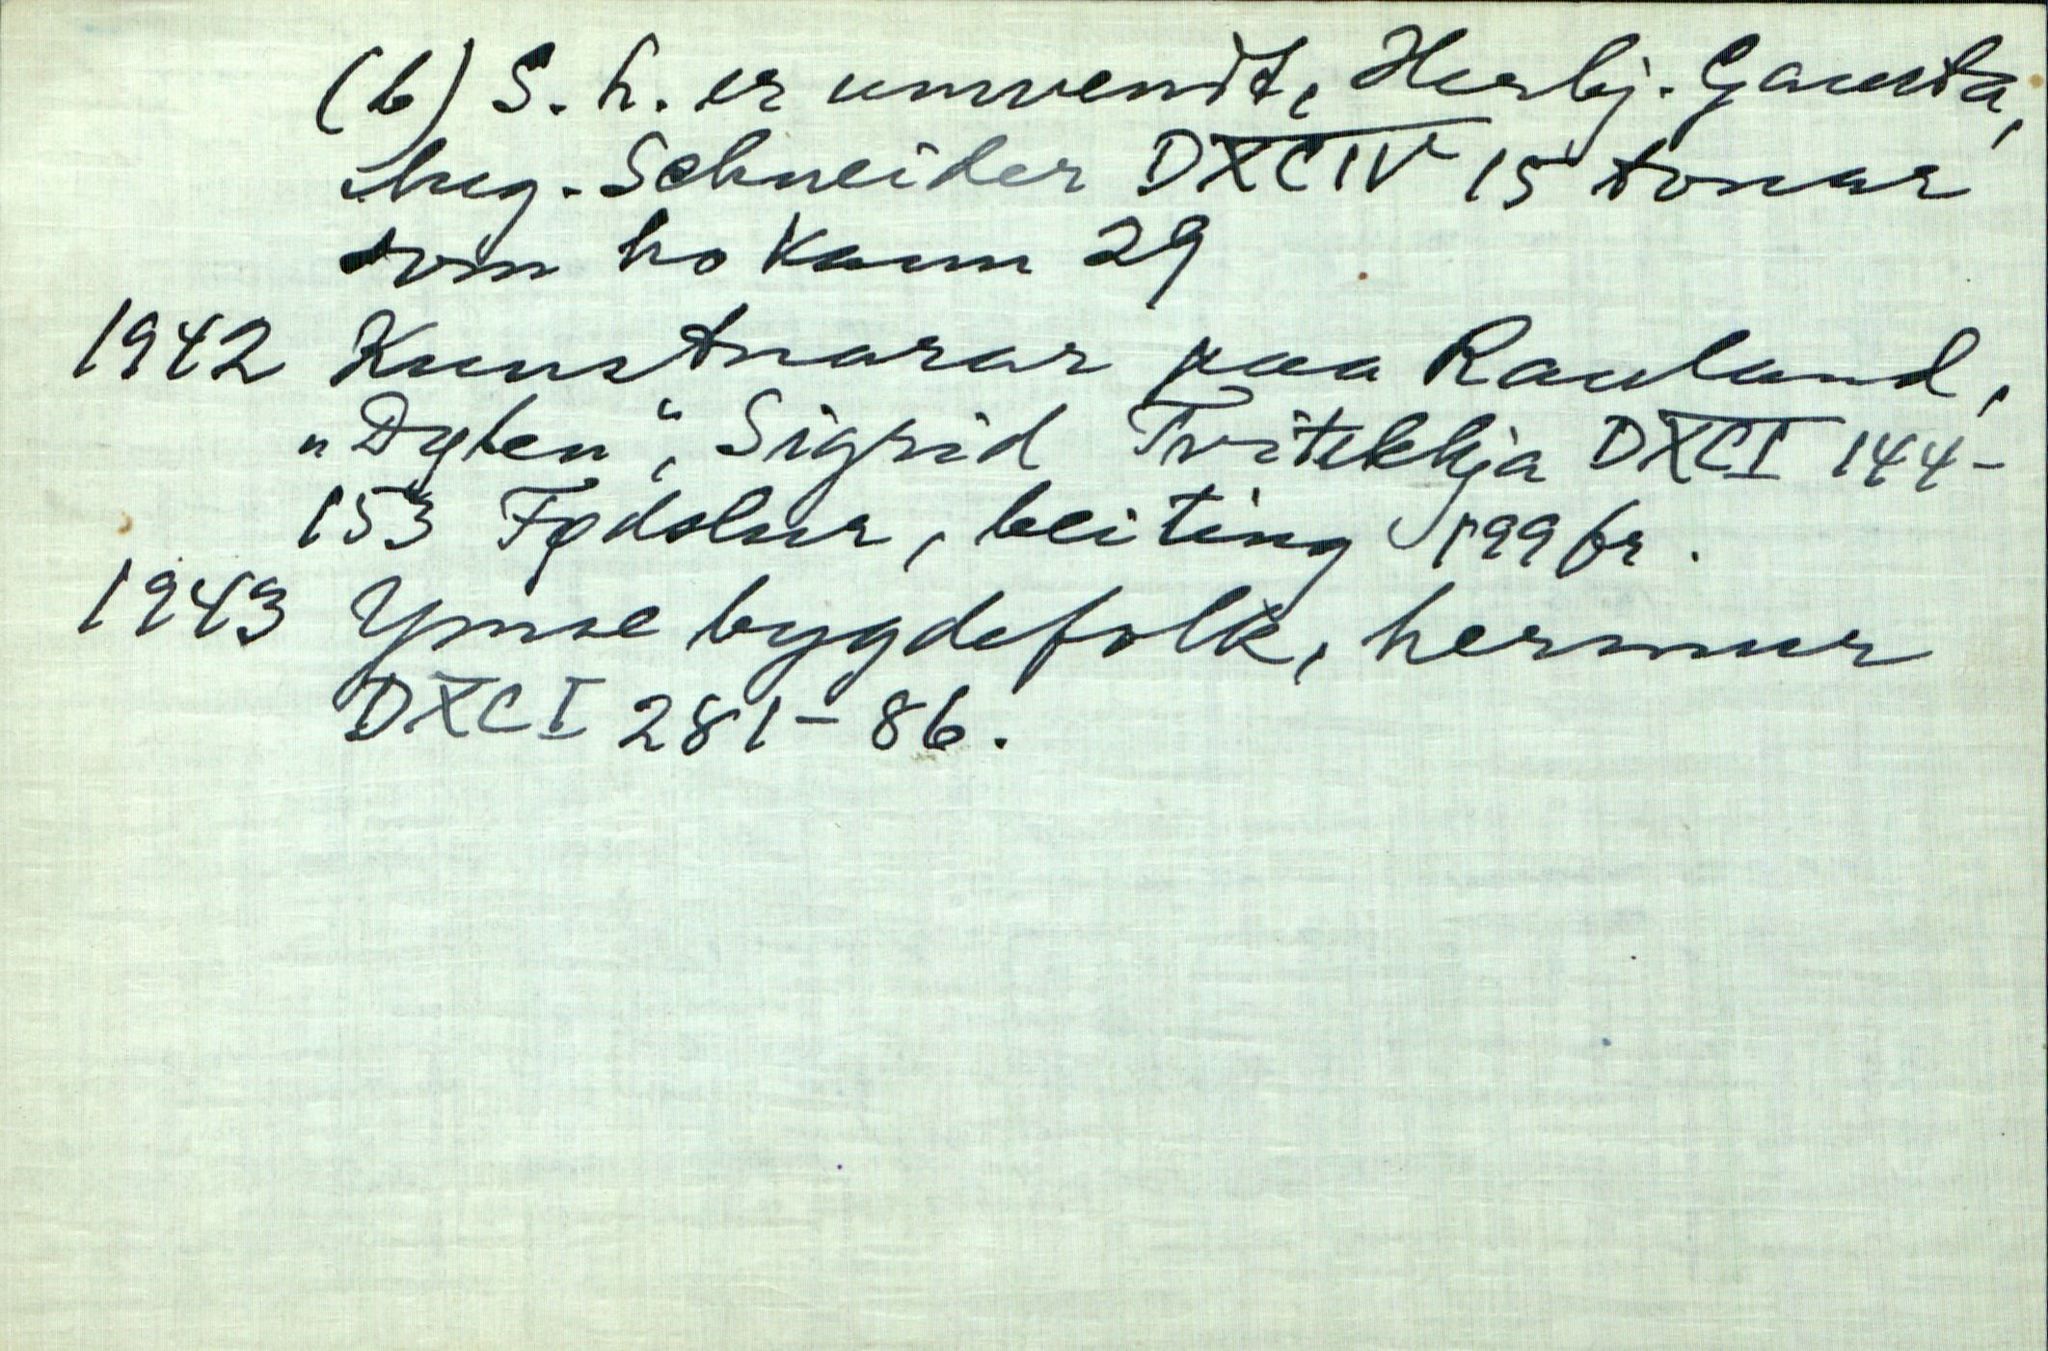 (b) S. h. er umvendt, Herbj. Gausta,
Aug. Schneider DXCIV 15 tonar
som ho kann 29
1942 Kunstnarar paa Rauland,
„Dylen“, Sigrid Tvitekkja DXCI 144-
153 Fødslur, beiting 199 fr.
1943 Ymse bygdefolk, hermur
DXCI 281-86.